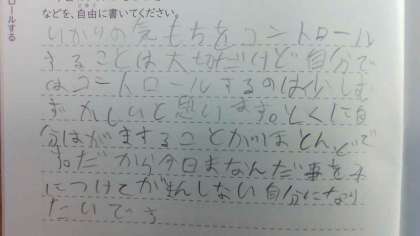 ロールする
などを、自由に書いてください。
いかりの気もちをコントロール
することは大切だけど自分で
はコントロールするのは少しむ
ずかしいと思います。とくに自
分はがまんすることがほとんどで
す。だから今日まなんだ事を
につけてがまんしない自分になり
たいです